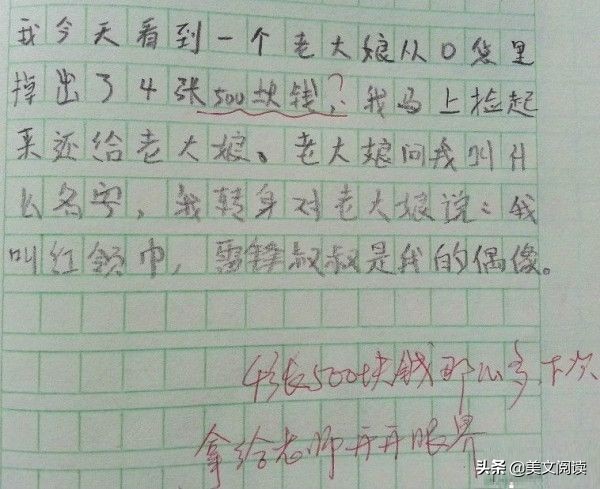 我今天看到一个老大娘从口袋里
掉出了4张500块钱,?我马上捡起
来还给老大娘。老大娘问我叫什
么名字,我转身对老大娘说:我
叫红领巾,雷锋叔叔是我的偶像。
4张500块钱那么多,下次
拿给老师开开眼界
头条 @美文阅读